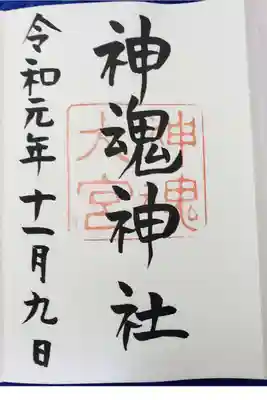 神魂神社
令和元年十一月九日
神魂
大宮